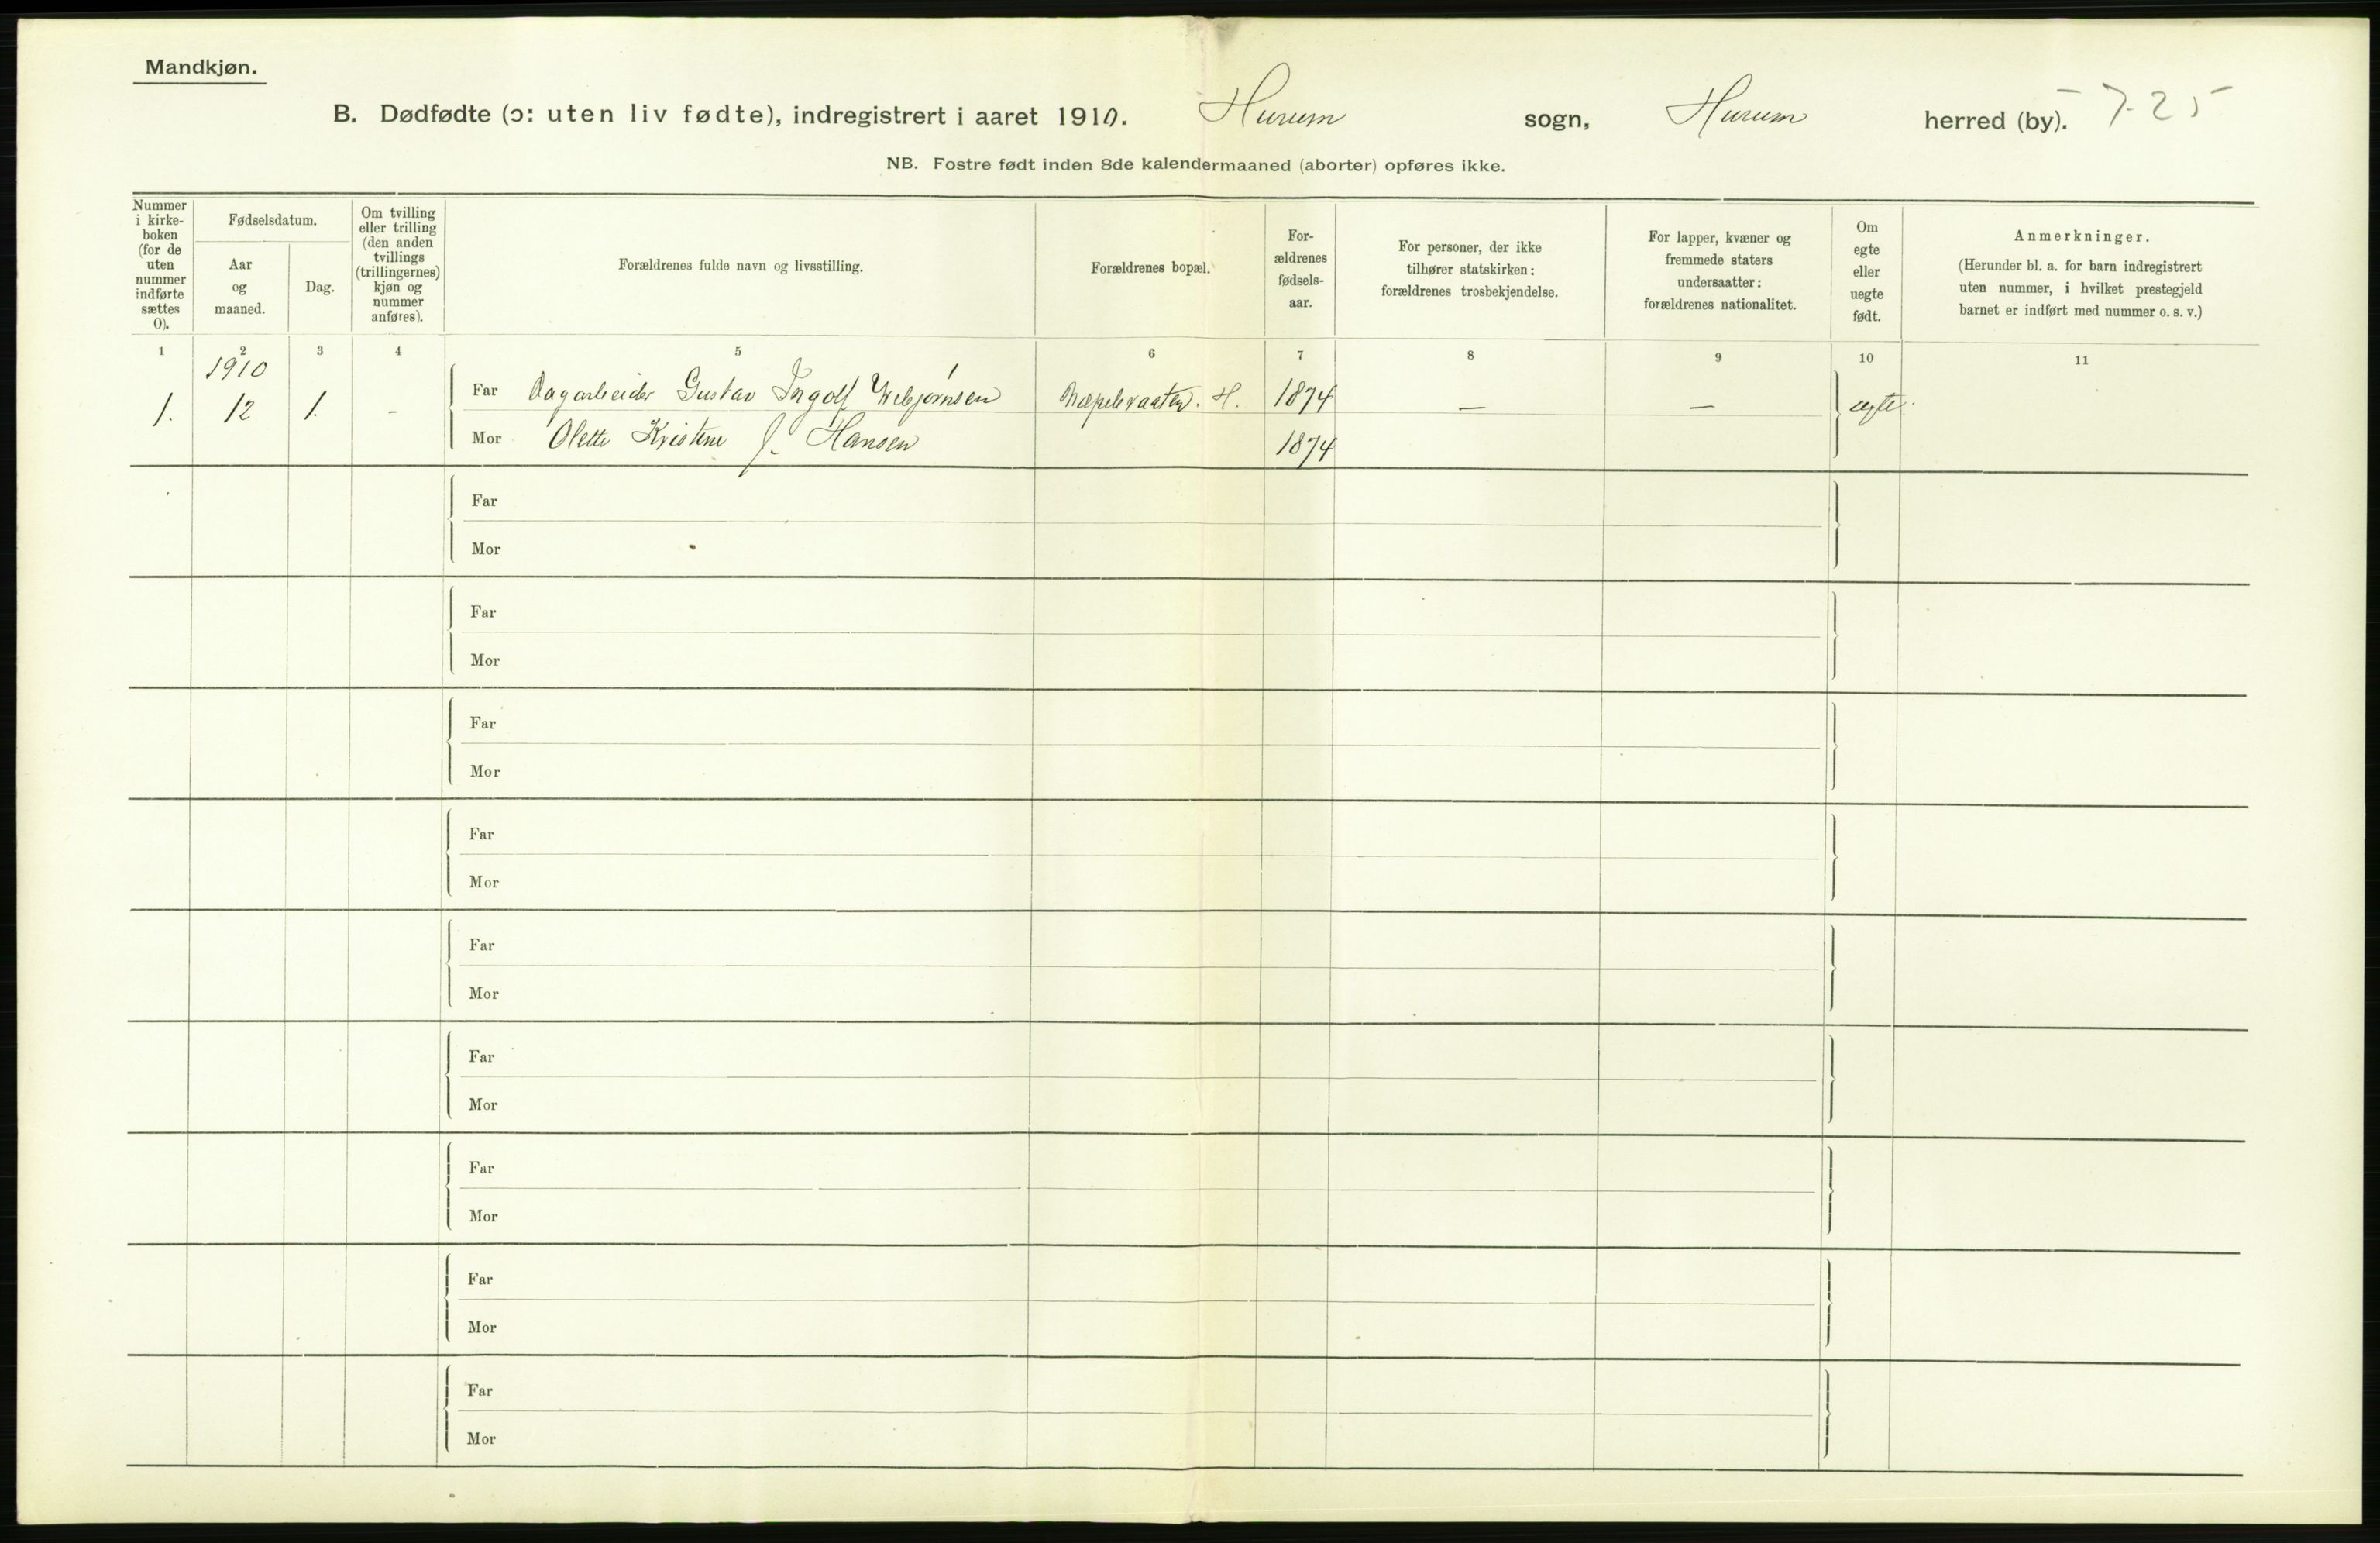 Mandkjøn.
B. Dødfødte (ɔ: uten liv fødte), indregistrert i aaret 1910. Hurum sogn, Hurum herred (by). 725
NB. Fostre født inden 8de kalendermaaned (aborter) opføres ikke.
Nummer
i kirke-
boken
(for de
uten
nummer
indførte
sættes
0).
Fødselsdatum.
Aar
og
maaned.
Dag.
Om tvilling
eller trilling
(den anden
tvillings
(trillingernes)
kjøn og
nummer
anføres).
Forældrenes fulde navn og livsstilling.
Forældrenes bopæl.
For-
ældrenes
fødsels-
aar.
For personer, der ikke
tilhører statskirken:
forældrenes trosbekjendelse.
For lapper, kvæner og
fremmede staters
undersaatter:
forældrenes nationalitet.
Om
egte
eller
uegte
født.
Anmerkninger.
(Herunder bl. a. for barn indregistrert
uten nummer, i hvilket prestegjeld
barnet er indført med nummer o. s. v.)
1 2 3 4 5 6 7 8 9 10 11
1910
1. 12 1. - Far Dagarbeider Gustav Ingolf H. 1874 — — egte.
Mor Olette Kristine f. Hansen 1874
Far
Mor
Far
Mor
Far
Mor
Far
Mor
Far
Mor
Far
Mor
Far
Mor
Far
Mor
Far
Mor